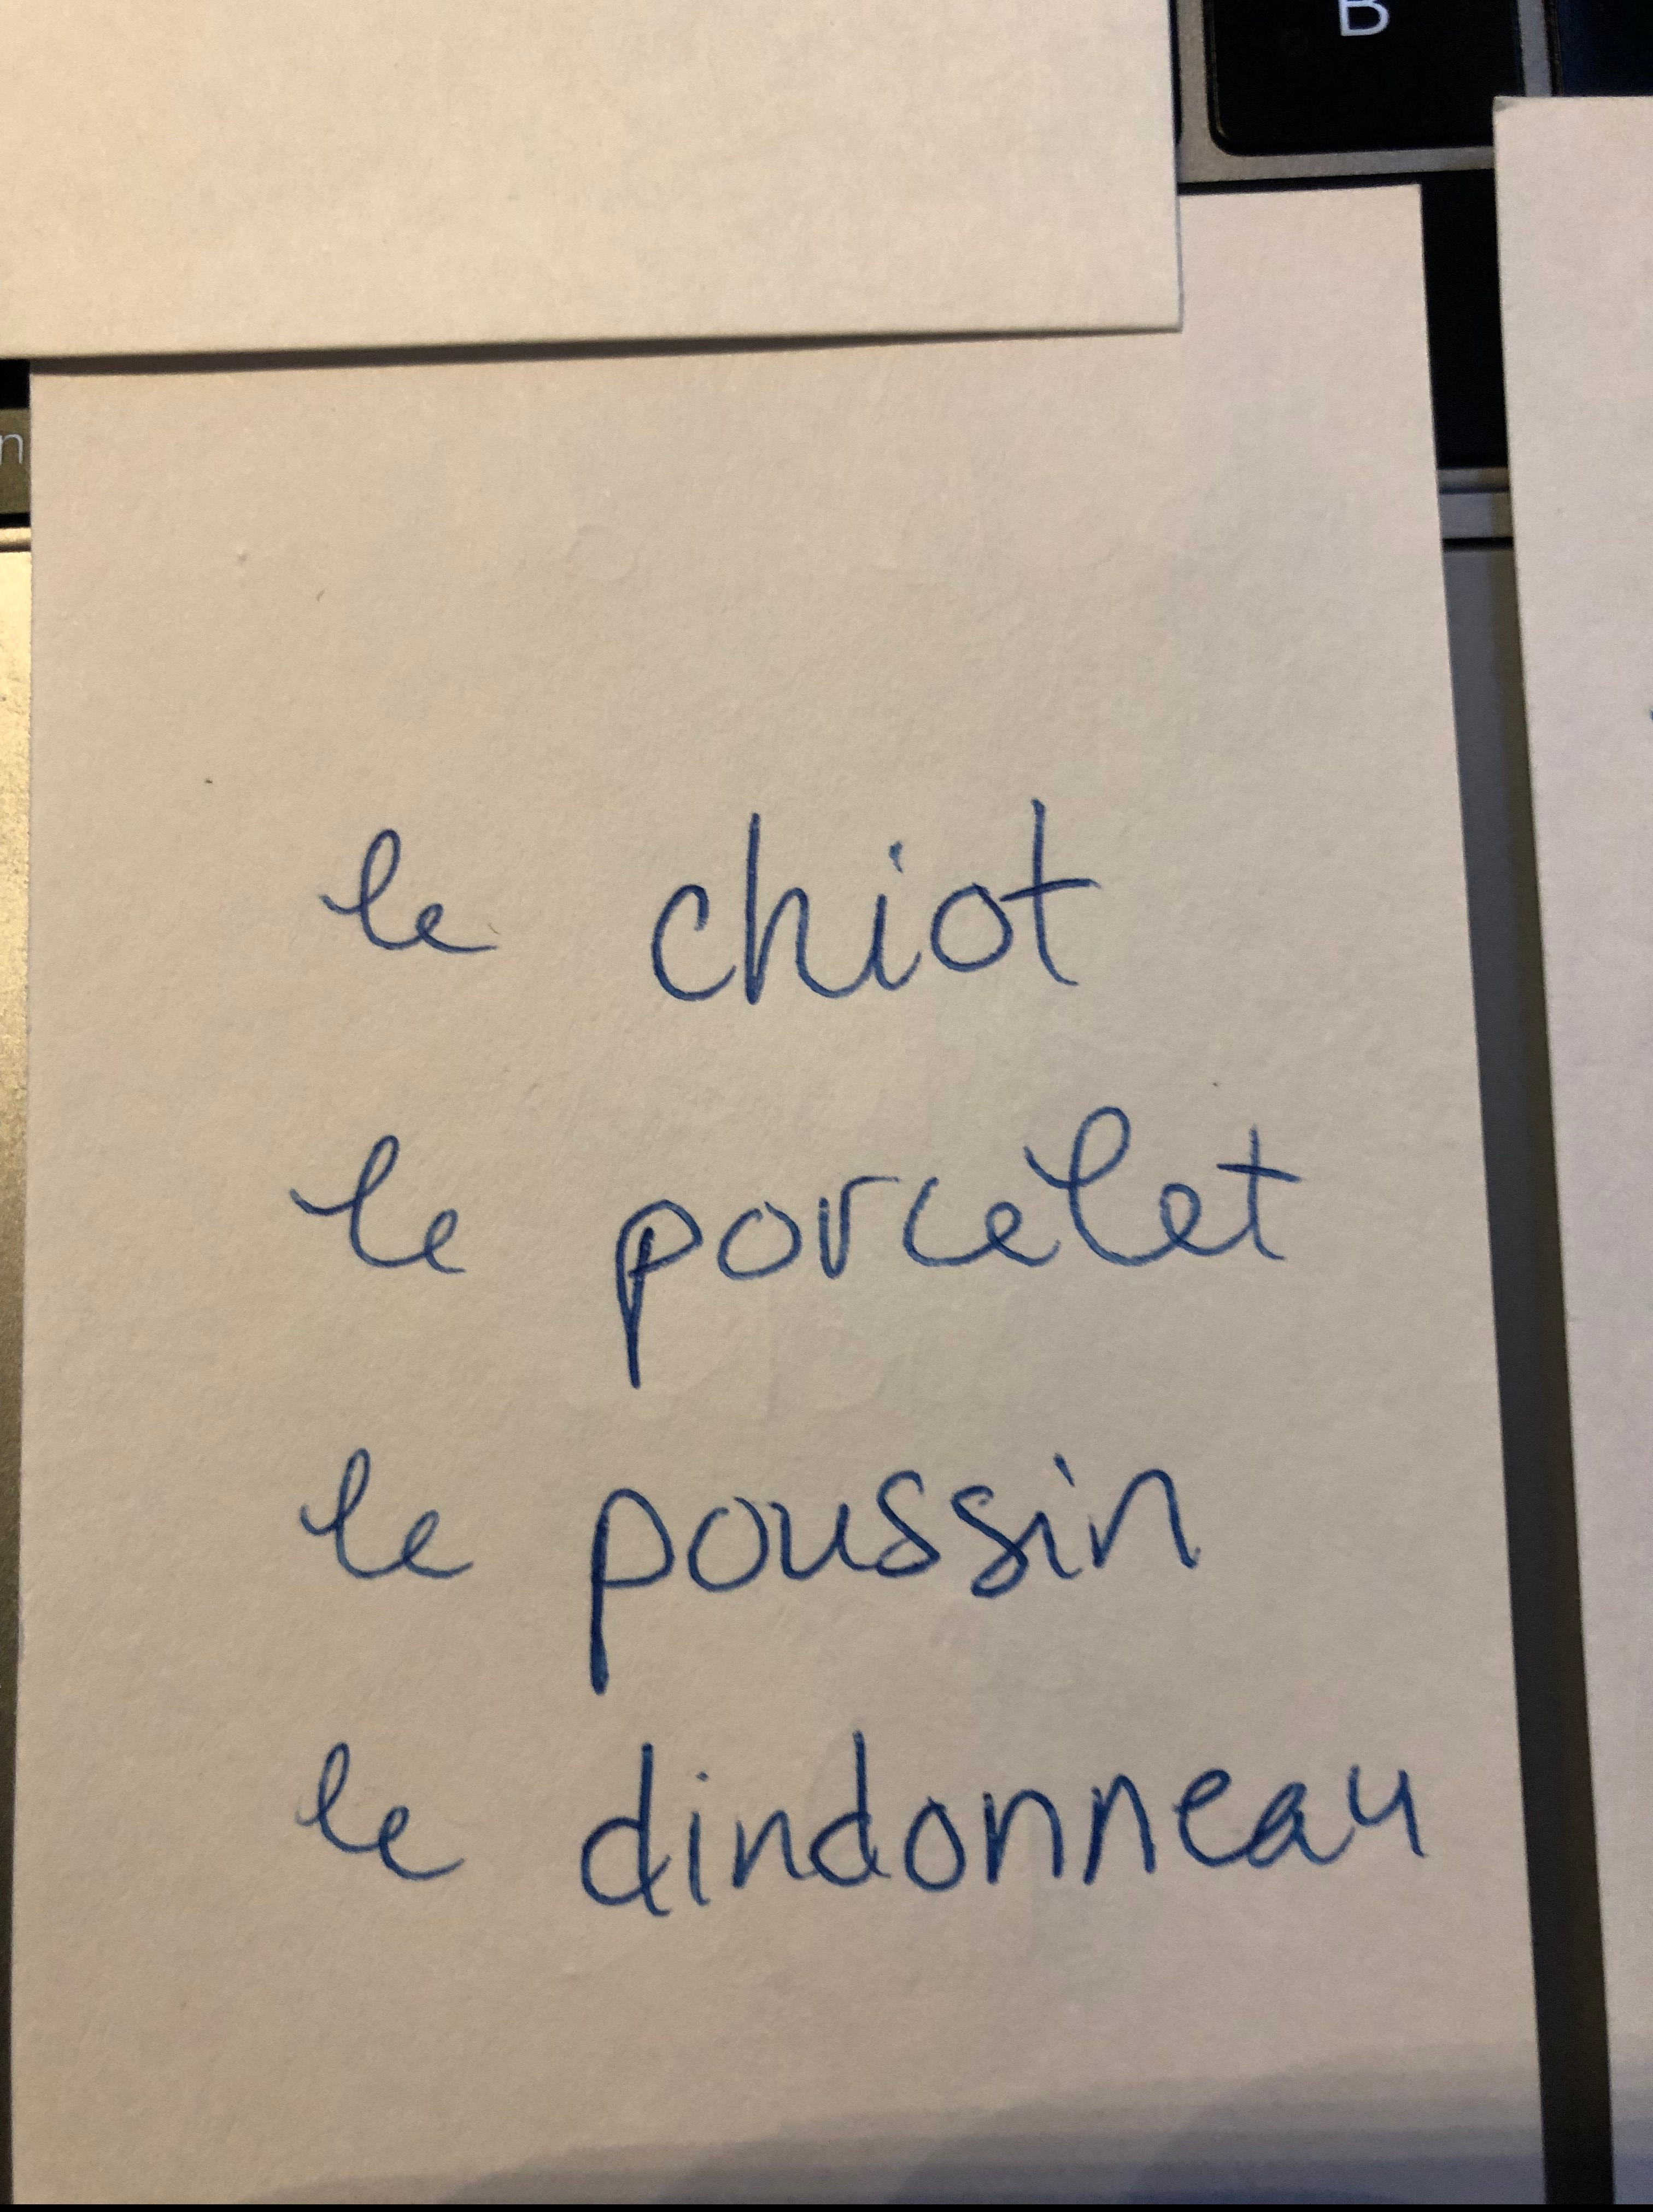 B
n
le chiot
le porcelet
le poussin
le dindonneau